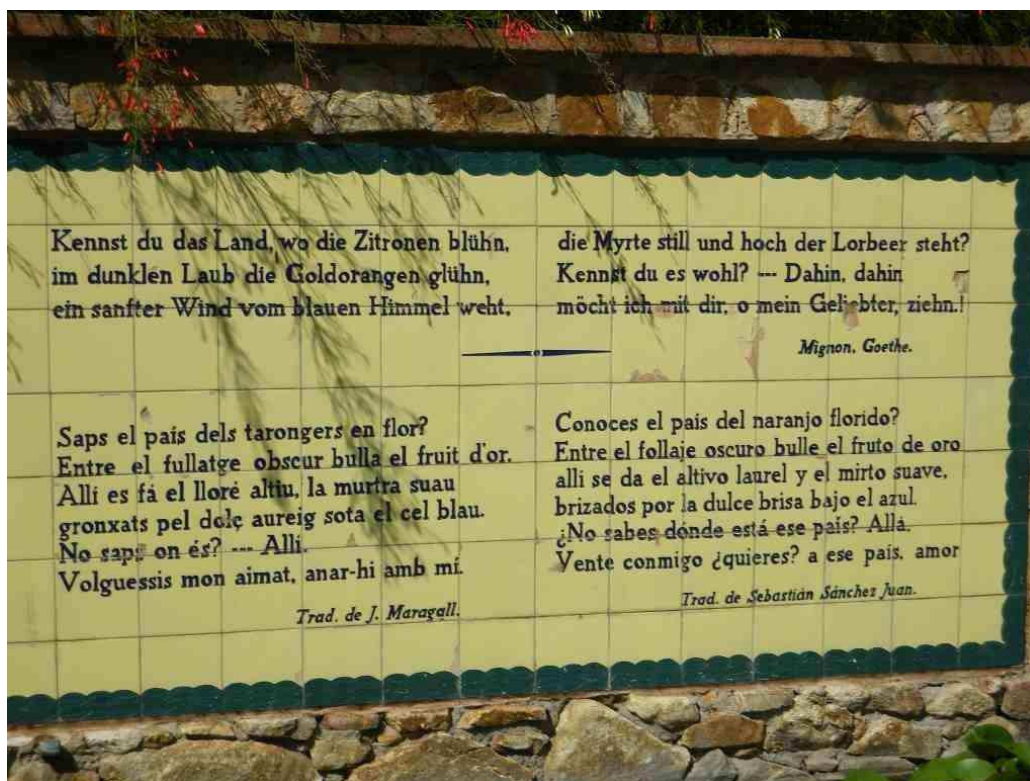 Kennst du das Land, wo die Zitronen blühn,
im dunklen Laub die Goldorangen glühn,
ein sanfter Wind vom blauen Himmel weht,
die Myrte still und hoch der Lorbeer steht?
Kennst du es wohl? --- Dahin, dahin
möcht ich mit dir, o mein Geliebter, ziehn.!
Mignon, Goethe.
Saps el país dels tarongers en flor?
Entre el fullatge obscur bulla el fruit d'or.
Allí es fá el lloré altiu, la murtra suau
gronxats pel dolç aureig sota el cel blau.
No saps on és? --- Allí.
Volguessis mon aimat, anar-hi amb mí.
Trad. de J. Maragall.
Conoces el país del naranjo florido?
Entre el follaje oscuro bulle el fruto de oro
allí se da el altivo laurel y el mirto suave,
brizados por la dulce brisa bajo el azul.
¿No sabes dónde está ese país? Allá.
Vente conmigo ¿quieres? a ese país, amor
Trad. de Sebastián Sánchez Juan.